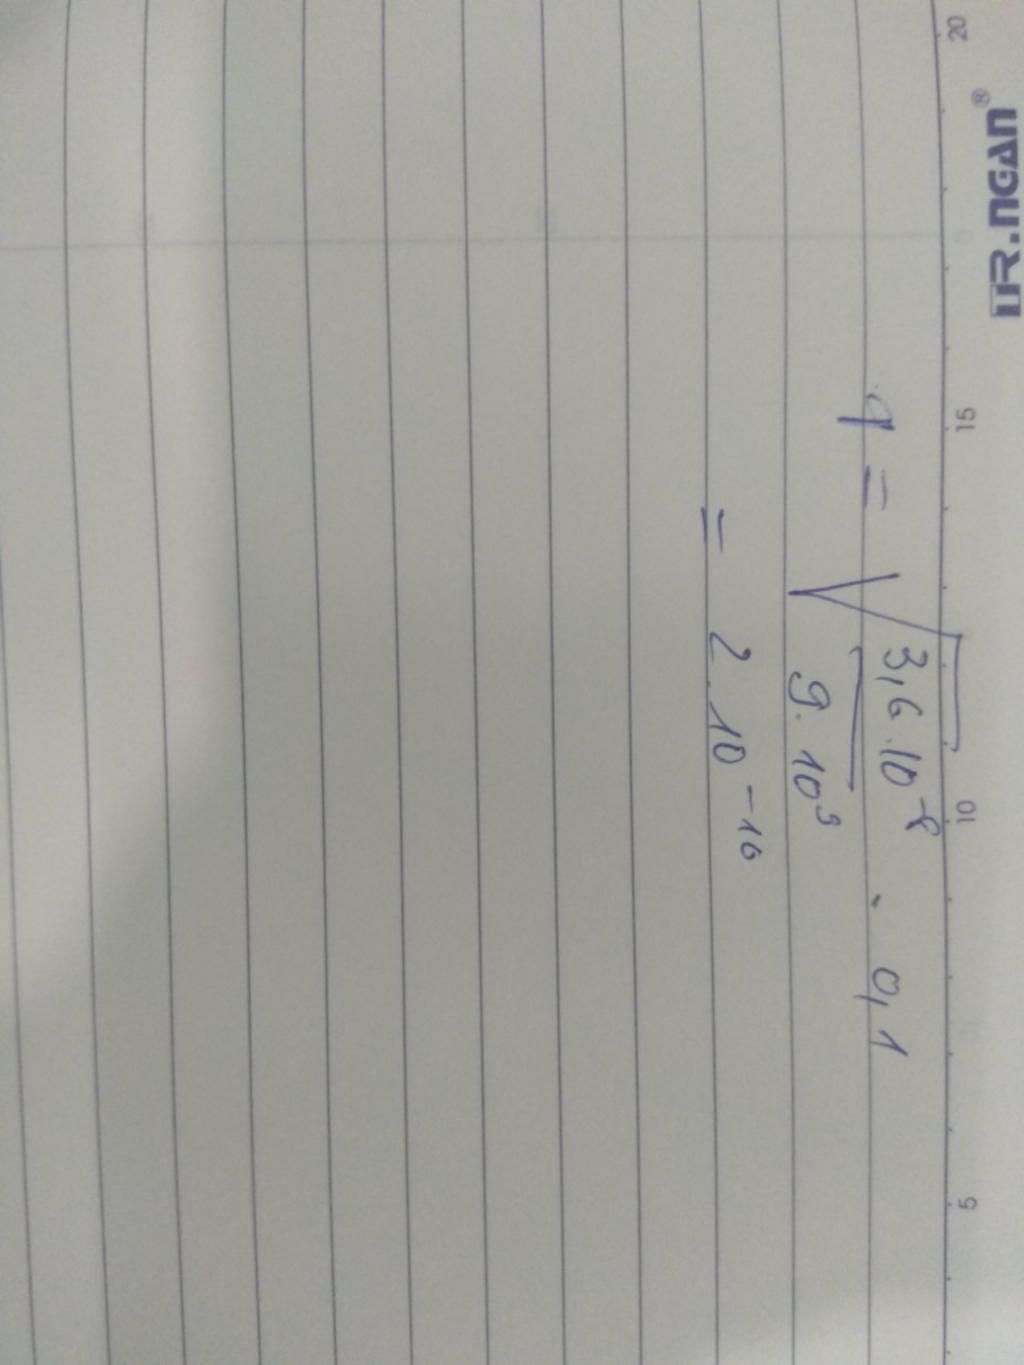 TR.NGAN®
20 15 10 5
q = √(3,6.10⁻⁸ / 9.10⁹) . 0,1
= 2.10⁻¹⁰